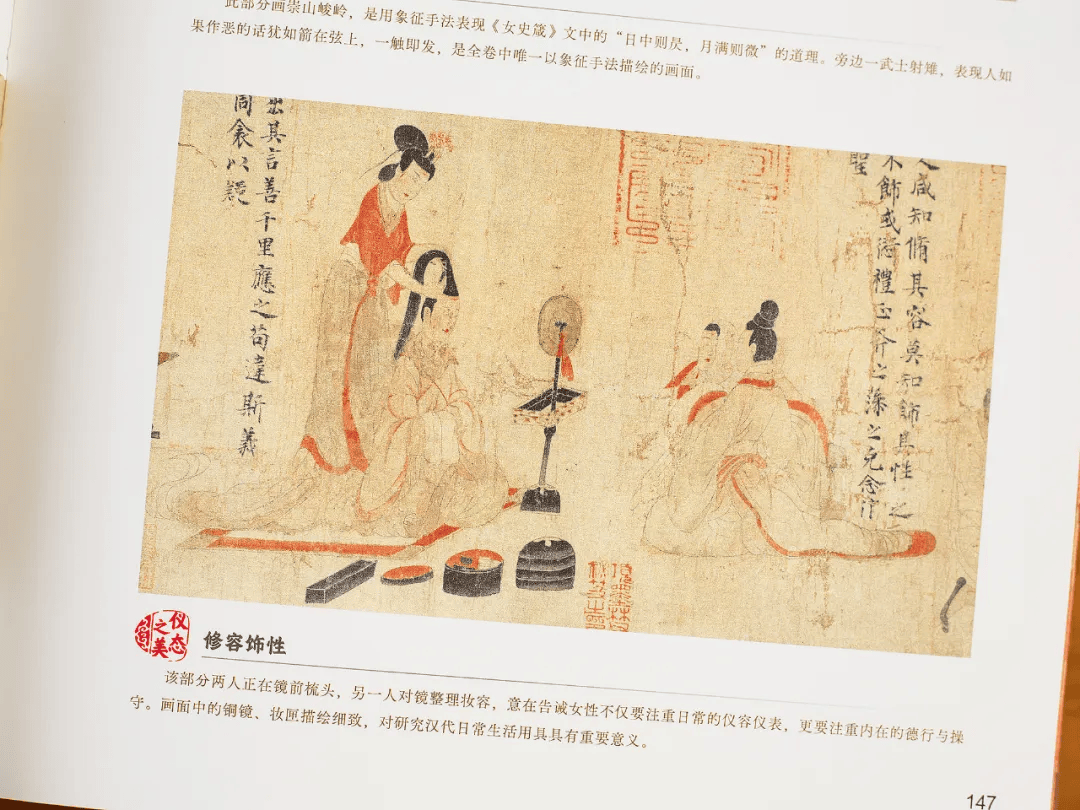 此部分画崇山峻岭,是用象征手法表现《女史箴》文中的“日中则昃,月满则微”的道理。旁边一武士射雉,表现人如
果作恶的话犹如箭在弦上,一触即发,是全卷中唯一以象征手法描绘的画面。
人咸知脩其容莫知飾其性之
不飾或愆禮正斧之藻之克念作
聖
出其言善千里應之苟違斯義
同衾以疑
仪态之美
修容饰性
该部分两人正在镜前梳头,另一人对镜整理妆容,意在告诫女性不仅要注重日常的仪容仪表,更要注重内在的德行与操
守。画面中的铜镜、妆匣描绘细致,对研究汉代日常生活用具具有重要意义。
147